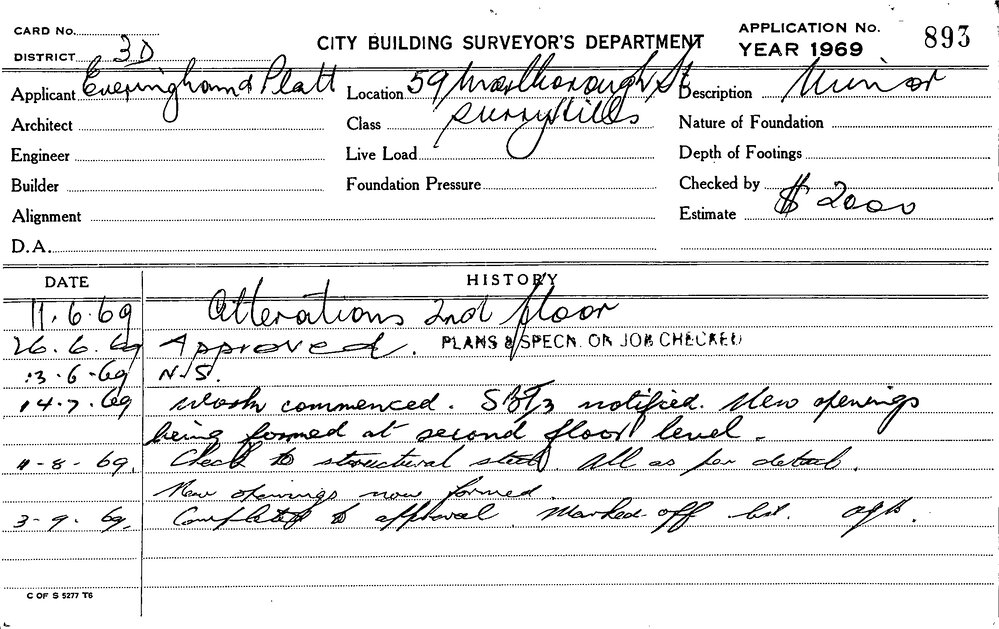 CARD No.
DISTRICT 3D
CITY BUILDING SURVEYOR'S DEPARTMENT
APPLICATION No. 893
YEAR 1969
Applicant Everingham & Platt Location 59 Marlborough St Description Minor
Architect Class Surry Hills Nature of Foundation
Engineer Live Load Depth of Footings
Builder Foundation Pressure Checked by
Alignment Estimate $ 2000
D.A.
DATE HISTORY
11.6.69 Alterations 2nd floor
26.6.69 Approved. PLANS & SPECN. ON JOB CHECKED
13-6-69 N.S.
14.7.69 Work commenced. notified. New openings
being formed at second floor level.
11-8-69. Check to structural steel. All as per detail.
New openings now formed.
3-9-69. Completed to approval. Marked off
C OF S 5277 T6